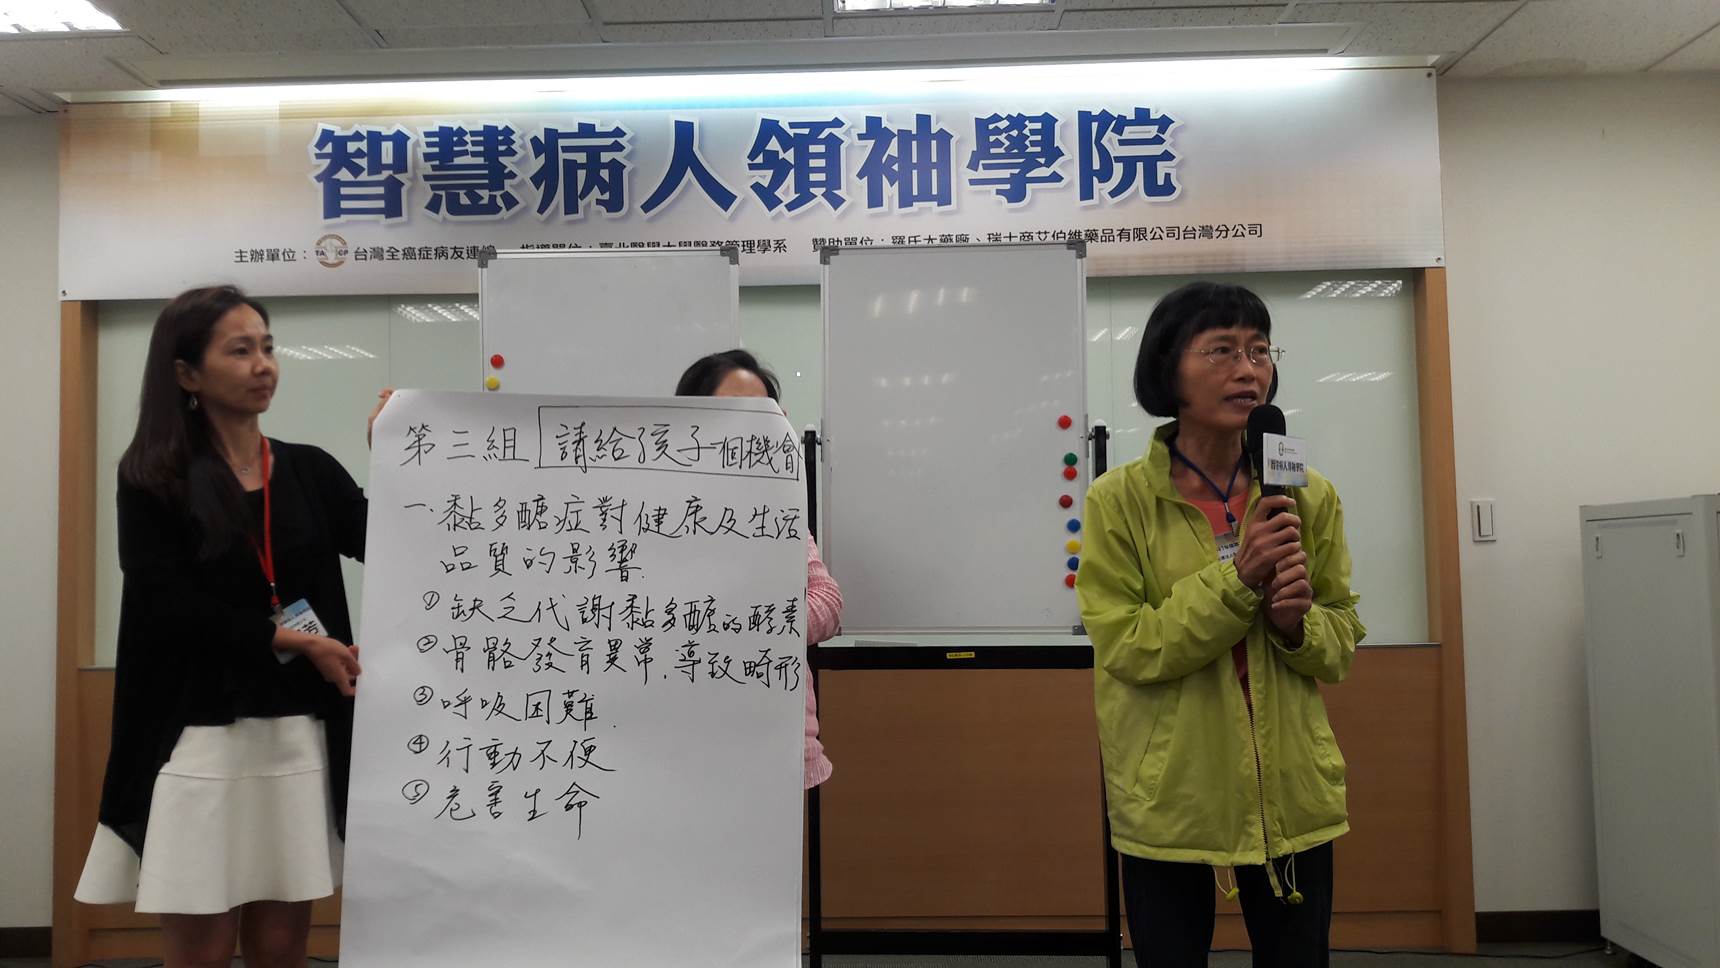 智慧病人領袖學院
主辦單位： TACP 台灣全癌症病友連線 指導單位：臺北醫學大學醫務管理學系 贊助單位：羅氏大藥廠、瑞士商艾伯維藥品有限公司台灣分公司
第三組 請給孩子一個機會
一、黏多醣症對健康及生活
品質的影響
① 缺乏代謝黏多醣的酵素
② 骨骼發育異常，導致畸形
③ 呼吸困難
④ 行動不便
⑤ 危害生命
智慧病人領袖學院
芳